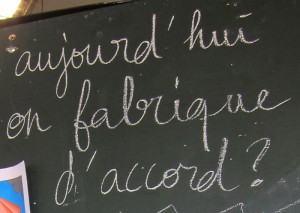 aujourd'hui
on fabrique
d'accord?